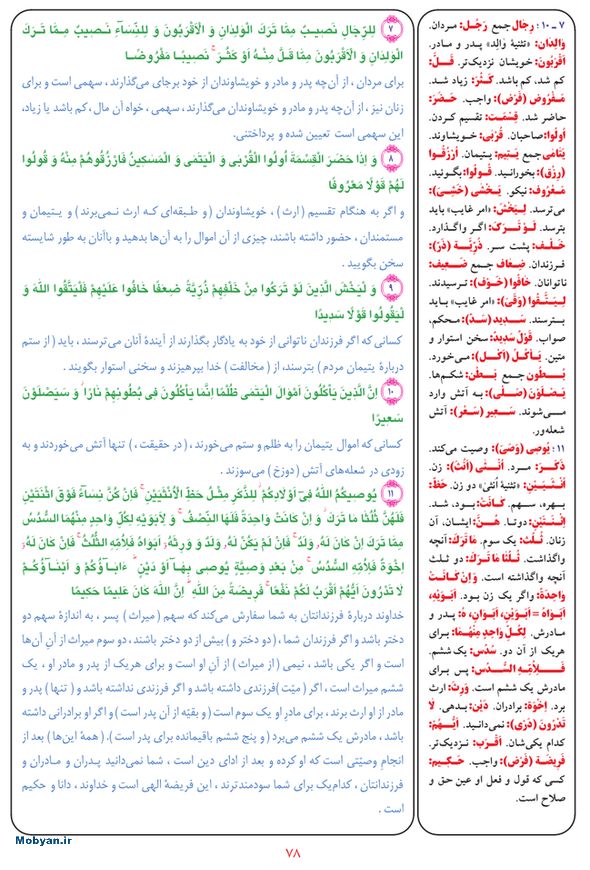 ٧ لِلرِّجالِ نَصیبٌ مِمّا تَرَكَ الْوالِدانِ وَ الْاَقْرَبُونَ وَ لِلنِّساءِ نَصیبٌ مِمّا تَرَكَ
الْوالِدانِ وَ الْاَقْرَبُونَ مِمّا قَلَّ مِنْهُ اَوْ كَثُرَ نَصیبًا مَفْرُوضًا
برای مردان ، از آن‌چه پدر و مادر و خویشاوندان از خود برجای می‌گذارند، سهمی است و برای
زنان نیز ، از آن‌چه پدر و مادر و خویشاوندان می‌گذارند، سهمی، خواه آن مال ، کم باشد یا زیاد،
این سهمی است تعیین شده و پرداختنی.
٨ وَ اِذا حَضَرَ الْقِسْمَةَ اُولُوا الْقُرْبی وَ الْیَتامی وَ الْمَساكینُ فَارْزُقُوهُمْ مِنْهُ وَ قُولُوا
لَهُمْ قَوْلًا مَعْرُوفًا
و اگر به هنگام تقسیم (ارث) ، خویشاوندان (و طبقه‌ای که ارث نمی‌برند) و یتیمان و
مستمندان ، حضور داشته باشند، چیزی از آن اموال را به آن‌ها بدهید و باآنان به طور شایسته
سخن بگویید .
٩ وَ لْیَخْشَ الَّذینَ لَوْ تَرَكُوا مِنْ خَلْفِهِمْ ذُرِّیَّةً ضِعافًا خافُوا عَلَیْهِمْ فَلْیَتَّقُوا اللهَ وَ
لْیَقُولُوا قَوْلًا سَدیدًا
کسانی که اگر فرزندان ناتوانی از خود به یادگار بگذارند از آیندهٔ آنان می‌ترسند ، باید (از ستم
دربارهٔ یتیمان مردم) بترسند، از (مخالفت) خدا بپرهیزند و سخنی استوار بگویند .
١٠ اِنَّ الَّذینَ یَأْكُلُونَ اَمْوالَ الْیَتامی ظُلْمًا اِنَّما یَأْكُلُونَ فی بُطُونِهِمْ نارًا وَ سَیَصْلَوْنَ
سَعیرًا
کسانی که اموال یتیمان را به ظلم و ستم می‌خورند ، (در حقیقت ،) تنها آتش می‌خوردند و به
زودی در شعله‌های آتش (دوزخ) می‌سوزند .
١١ یُوصیكُمُ اللهُ فی اَوْلادِكُمْ لِلذَّكَرِ مِثْلُ حَظِّ الْاُنْثَیَیْنِ فَاِنْ كُنَّ نِساءً فَوْقَ اثْنَتَیْنِ
فَلَهُنَّ ثُلُثا ما تَرَكَ وَ اِنْ كانَتْ واحِدَةً فَلَهَا النِّصْفُ وَ لِاَبَوَیْهِ لِكُلِّ واحِدٍ مِنْهُمَا السُّدُسُ
مِمّا تَرَكَ اِنْ كانَ لَهُ وَلَدٌ فَاِنْ لَمْ یَكُنْ لَهُ وَلَدٌ وَ وَرِثَهُ اَبَواهُ فَلِاُمِّهِ الثُّلُثُ فَاِنْ كانَ لَهُ
اِخْوَةٌ فَلِاُمِّهِ السُّدُسُ مِنْ بَعْدِ وَصِیَّةٍ یُوصی بِها اَوْ دَیْنٍ ءاباؤُكُمْ وَ اَبْناؤُكُمْ
لا تَدْرُونَ اَیُّهُمْ اَقْرَبُ لَكُمْ نَفْعًا فَریضَةً مِنَ اللهِ اِنَّ اللهَ كانَ عَلیمًا حَكیمًا
خداوند دربارهٔ فرزندانتان به شما سفارش می‌کند که سهم (میراث) پسر ، به اندازهٔ سهم دو
دختر باشد و اگر فرزندان شما ، (دو دختر و) بیش از دو دختر باشند ، دو سوم میراث از آنِ آن‌ها
است و اگر یکی باشد ، نیمی (از میراث) از آنِ او است و برای هریک از پدر و مادر او ، یک
ششم میراث است ، اگر (میّت) فرزندی داشته باشد و اگر فرزندی نداشته باشد و (تنها) پدر و
مادر از او ارث برند ، برای مادرِ او یک سوم است (و بقیّه از آن پدر است) و اگر او برادرانی داشته
باشد ، مادرش یک ششم می‌برد (و پنج ششم باقیمانده برای پدر است) . (همهٔ این‌ها) بعد از
انجام وصیّتی است که او کرده و بعد از ادای دین است ، شما نمی‌دانید پدران و مادران و
فرزندانتان ، کدام‌یک برای شما سودمندترند ، این فریضهٔ الهی است و خداوند ، دانا و حکیم
است .
٧ ـ ١٠ : رِجال جمع رَجُل: مردان.
والِدانِ: «تثنیهٔ والِد» پدر و مادر.
اَقْرَبُونَ: خویشان نزدیک‌تر. قَلَّ:
کم شد، کم باشد. كَثُرَ: زیاد شد.
مَفْرُوض (فَرَضَ): واجب. حَضَرَ:
حاضر شد. قِسْمَت: تقسیم کردن.
اُولُوا: صاحبان. قُرْبی: خویشاوند.
یَتامی جمع یَتیم: یتیمان. اُرْزُقُوا
(رِزْق): بخورانید. قُولُوا: بگوئید.
مَعْرُوف: نیکو. یَخْشی (خَشِیَ):
می‌ترسد. لِیَخْشَ: «امر غایب» باید
بترسد. لَوْ تَرَكَ: اگر واگذارد.
خَلْف: پشت سر. ذُرِّیَّة (ذَرَّ):
فرزندان. ضِعاف جمع ضَعیف:
ناتوانان. خافُوا (خَوْف): ترسیدند.
لِیَتَّقُوا (وَقی): «امر غایب» باید
بترسند. سَدید (سَدَّ): محکم،
صواب. قَوْل سَدید: سخن استوار و
متین. یَأْكُلُ (اَكَلَ): می‌خورد.
بُطُون جمع بَطْن: شکم‌ها.
یَصْلَوْنَ (صَلی): به آتش وارد
می‌شوند. سَعیر (سَعَرَ): آتش
شعله‌ور.
١١ : یُوصی (وَصَیَ): وصیت می‌کند.
ذَكَر: مرد. اُنْثی (اَنُثَ): زن.
اُنْثَیَیْنِ: «تثنیهٔ اُنْثی» دو زن. حَظّ:
بهره، سهم. كانَتْ: بود، شد.
اِثْنَتَیْنِ: دوتا. هُنَّ: ایشان، آن
زنان. ثُلُث: یک سوم. ما تَرَكَ: آنچه
واگذاشت. ثُلُثا ما تَرَكَ: دو ثلث
آنچه واگذاشته است. وَ اِنْ كانَتْ
واحِدَةً: واگر یک زن بود. اَبَوَیْهِ،
اَبَواهُ = اَبَوَیْنِ، اَبَوانِ، هُ: پدر و
مادرش. لِكُلِّ واحِدٍ مِنْهُما: برای
هریک از آن دو. سُدُس: یک ششم.
فَلِاُمِّهِ السُّدُسُ: پس برای
مادرش یک ششم است. وَرِثَ: ارث
برد. اِخْوَة: برادران. دَیْن: بدهی. لا
تَدْرُونَ (دَرَیَ): نمی‌دانید. اَیُّهُمْ:
کدام یکی‌شان. اَقْرَب: نزدیک‌تر.
فَریضَة (فَرَضَ): واجب. حَكیم:
کسی که قول و فعل او عین حق و
صلاح است.
٧٨
Mobyan.ir